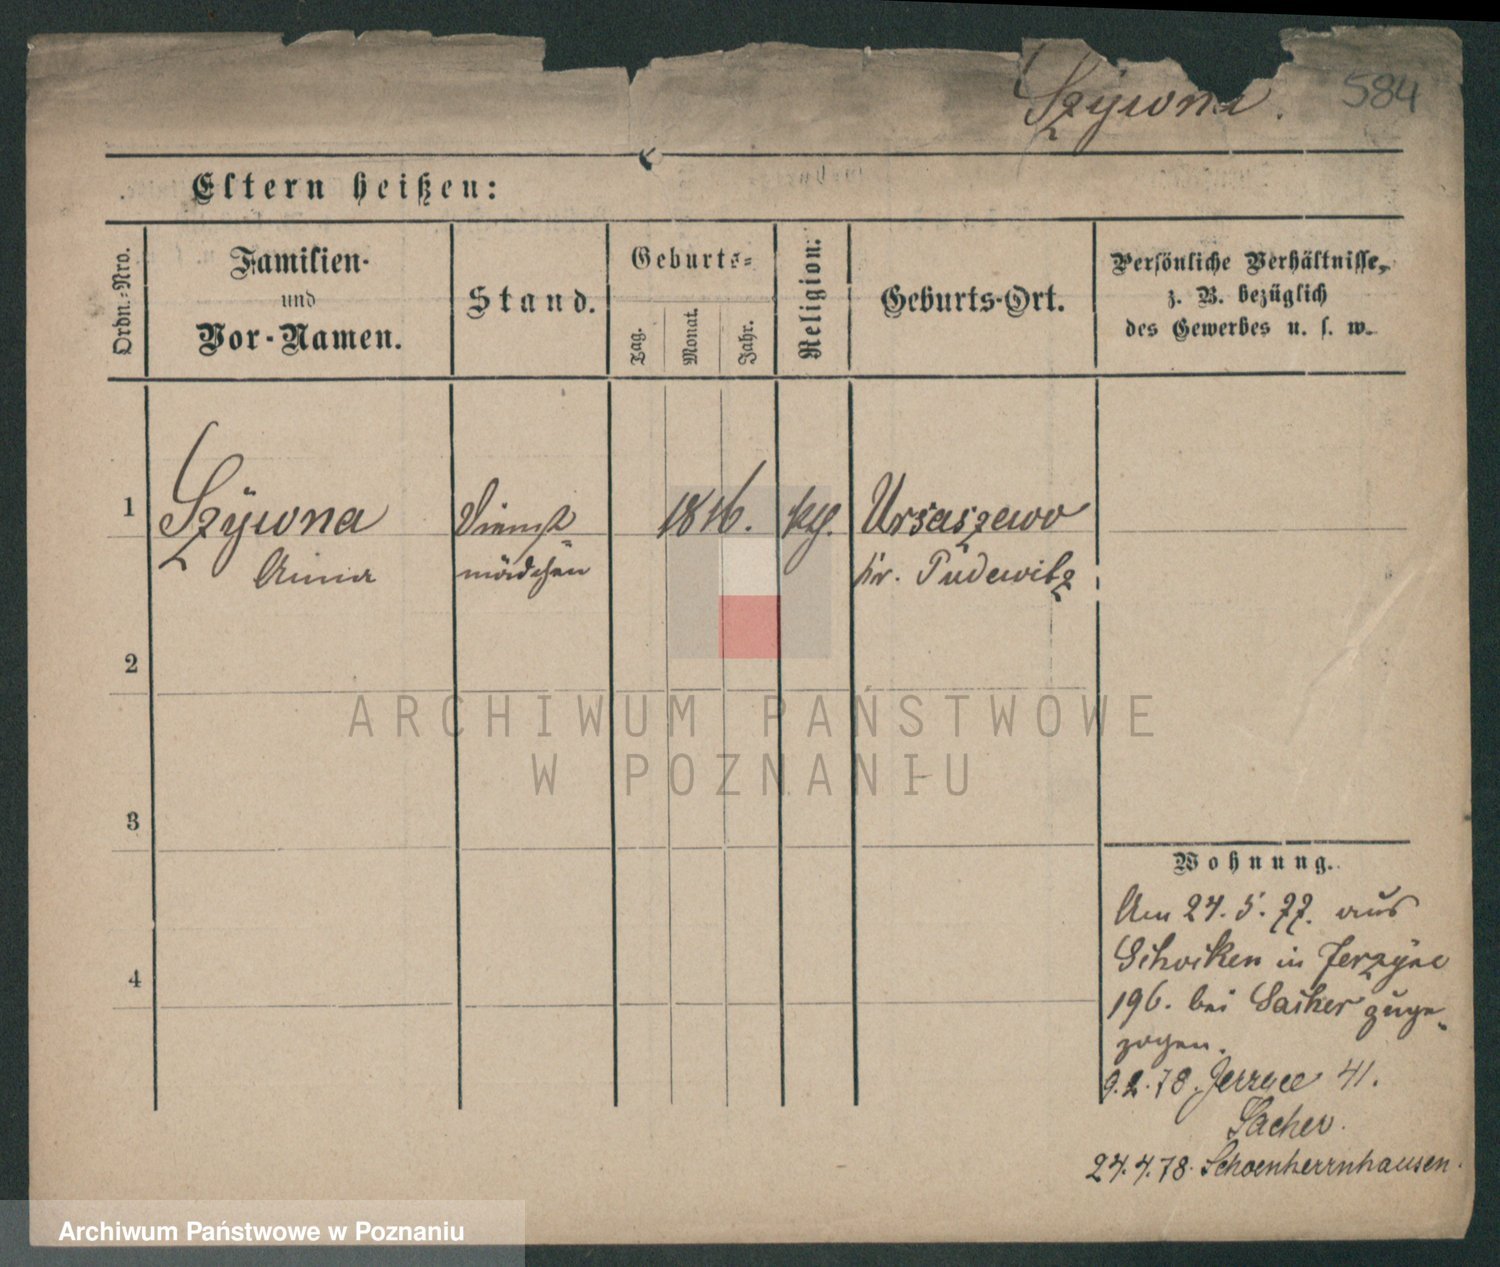 Szÿwna. 584
Eltern heißen:
Ordn.=Nro.
Familien-
und
Vor-Namen.
Stand.
Geburts=
Tag.
Monat.
Jahr.
Religion.
Geburts-Ort.
Persönliche Verhältnisse,
z. B. bezüglich
des Gewerbes u. s. w.
1
Szÿwna
Anna
Dienst=
mädchen
Ursaszewo
pr. Pudewitz
2
3
4
ARCHIWUM PAŃSTWOWE
W POZNANIU
Wohnung.
Am 24. 5. 77. aus
Schocken in Jerzÿce
196. bei Sacher zuge=
zogen.
9.2.78. Jerzyce 41.
Sacher.
24.4.78. Schoenherrnhausen.
Archiwum Państwowe w Poznaniu